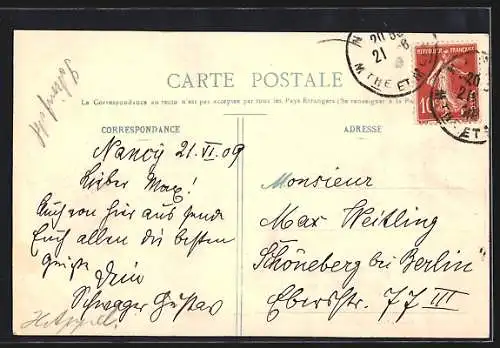 CARTE POSTALE
La Correspondance au recto n'est pas acceptée par tous les Pays Étrangers (Se renseigner à la P
CORRESPONDANCE
ADRESSE
RÉPUBLIQUE FRANÇAISE
10
21
MTHE ET M
Nancy 21.VI.09
Lieber Max!
Auch von hier aus sende
Euch allen die besten
Grüsse Dein
Schwager Gustav
Monsieur
Max Weitling
Schöneberg bei Berlin
Ebersstr. 77 III